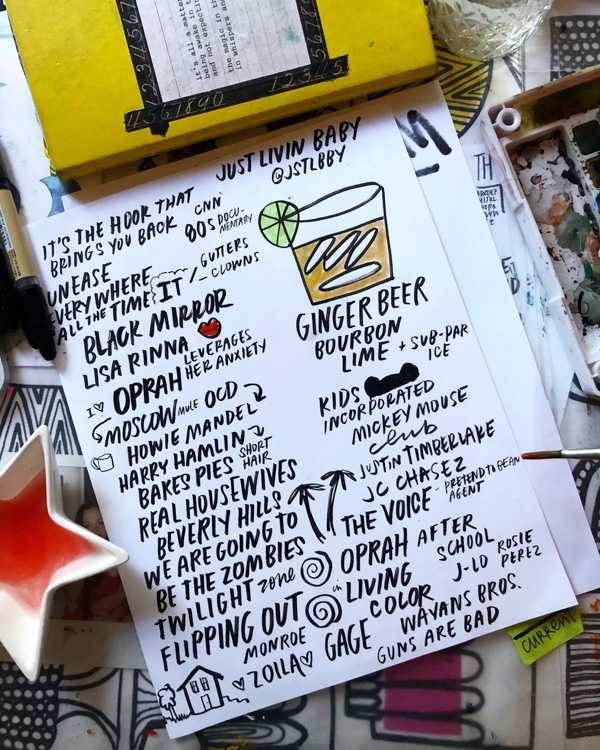 it's all a matter
being not expect
the magic in and
in whispers and
12345
4561890
JUST LIVIN BABY
@JSTLBBY
IT'S THE HOOR THAT
BRINGS YOU BACK
CNN
80S DOCU-
MENTARY
UNEASE
EVERYWHERE
ALL THE TIME
IT / GUTTERS
- CLOWNS
BLACK MIRROR
LISA RINNA
LEVERAGES
HER ANXIETY
I OPRAH
MOSCOW MULE OCD
HOWIE MANDEL
HARRY HAMLIN
SHORT
HAIR
BAKES PIES
REAL HOUSEWIVES
BEVERLY HILLS
WE ARE GOING TO
BE THE ZOMBIES
TWILIGHT zone
FLIPPING OUT
MONROE
ZOILA
GAGE
GINGER BEER
BOURBON
LIME + SUB-PAR
ICE
KIDS
INCORPORATED
MICKEY MOUSE
club
JUSTIN TIMBERLAKE
JC CHASEZ
THE VOICE - PRETEND TO BE AN
AGENT
OPRAH AFTER
SCHOOL
in LIVING
COLOR
J-LO ROSIE
PEREZ
WAYANS BROS.
GUNS ARE BAD
CURRENT